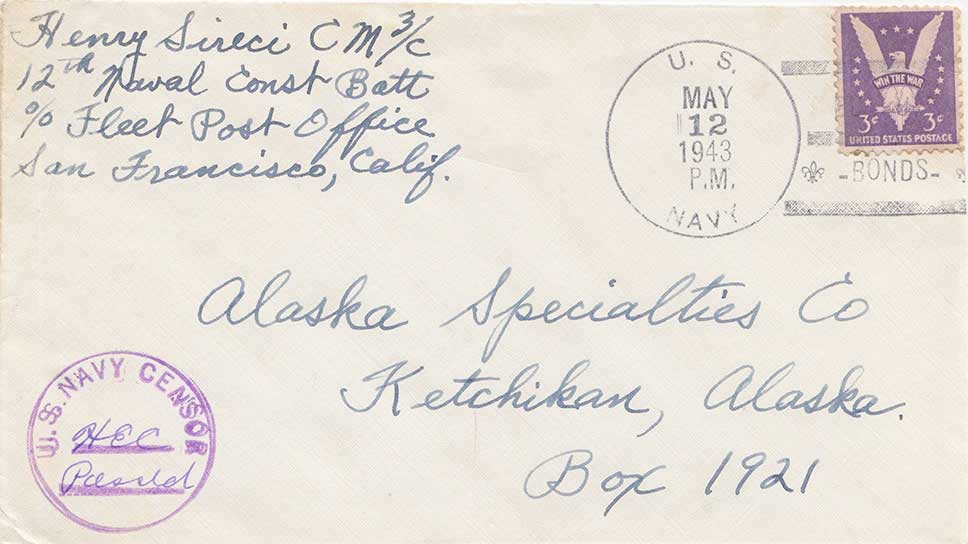 Henry Sireci CM 3/c
12th Naval Const Batt
c/o Fleet Post Office
San Francisco, Calif.
U. S.
MAY
12
1943
P.M.
NAVY
WIN THE WAR
3¢ 3¢
UNITED STATES POSTAGE
-BONDS-
Alaska Specialties Co
Ketchikan, Alaska.
Box 1921
U.S. NAVY CENSOR
HEC
Passed